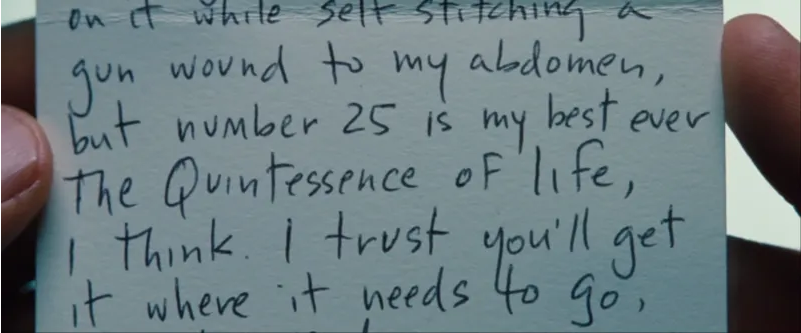 on it while self stitching a
gun wound to my abdomen,
but number 25 is my best ever
The Quintessence of life,
I think. I trust you'll get
it where it needs to go,